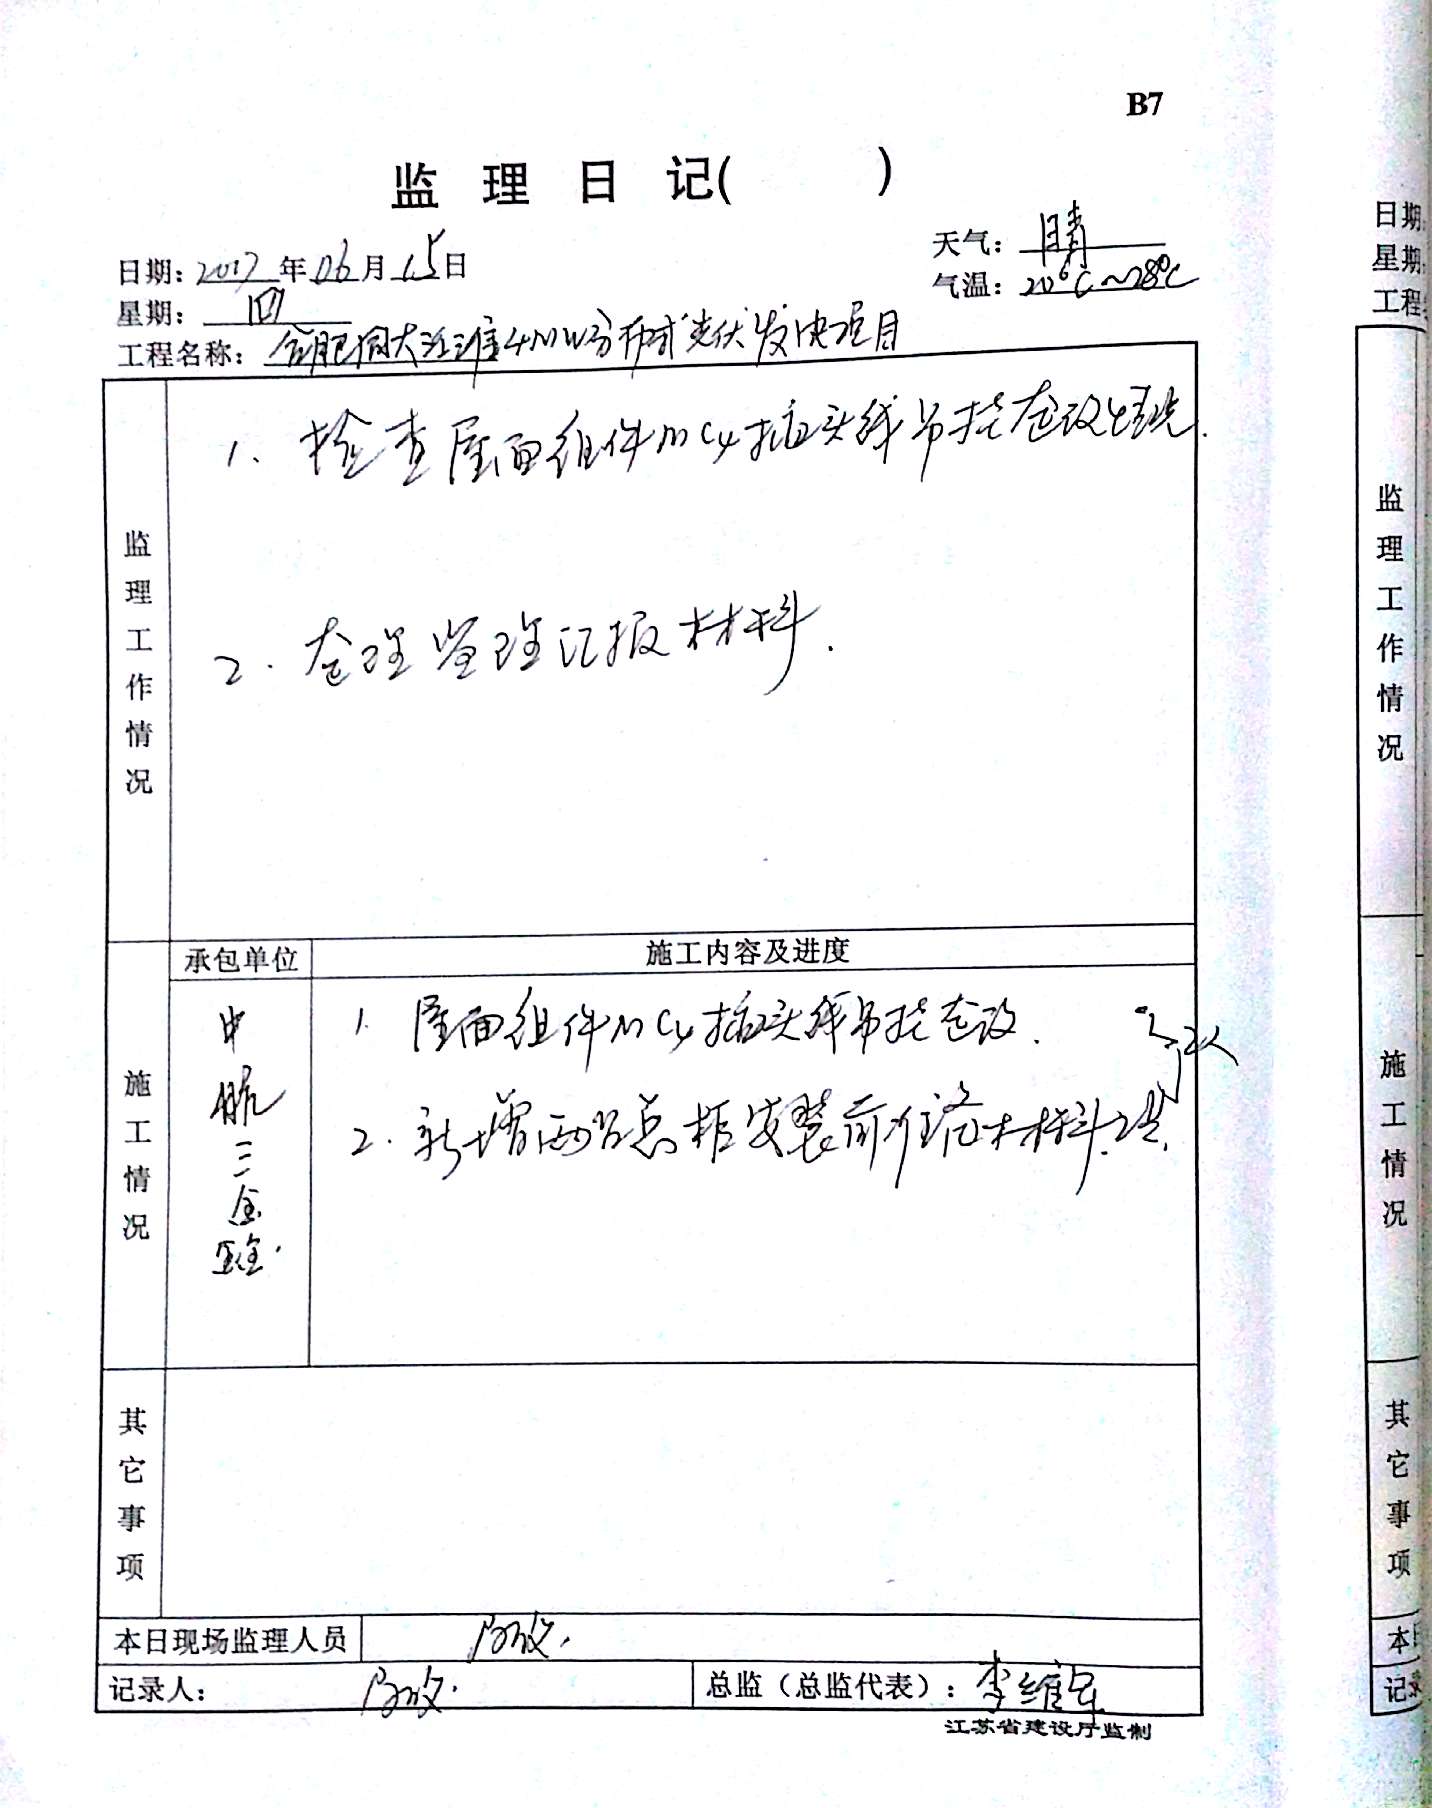 B7
监 理 日 记( )
日期: 2017 年 06 月 15 日
天气: 晴
星期: 四
气温: 20℃~28℃
工程名称: 合肥同大江淮4MW分布式光伏发电项目
监理工作情况
1. 检查屋面组件MC4插头线吊挂整改情况.
2. 整理监理汇报材料.
施工情况
承包单位
施工内容及进度
1. 屋面组件MC4插头线吊挂整改.
2. 新增两台总柜安装前准备材料.
其它事项
本日现场监理人员
记录人:
总监（总监代表）: 李维军
江苏省建设厅监制
日期
星期
工程
监理工作情况
施工情况
其它事项
本
记